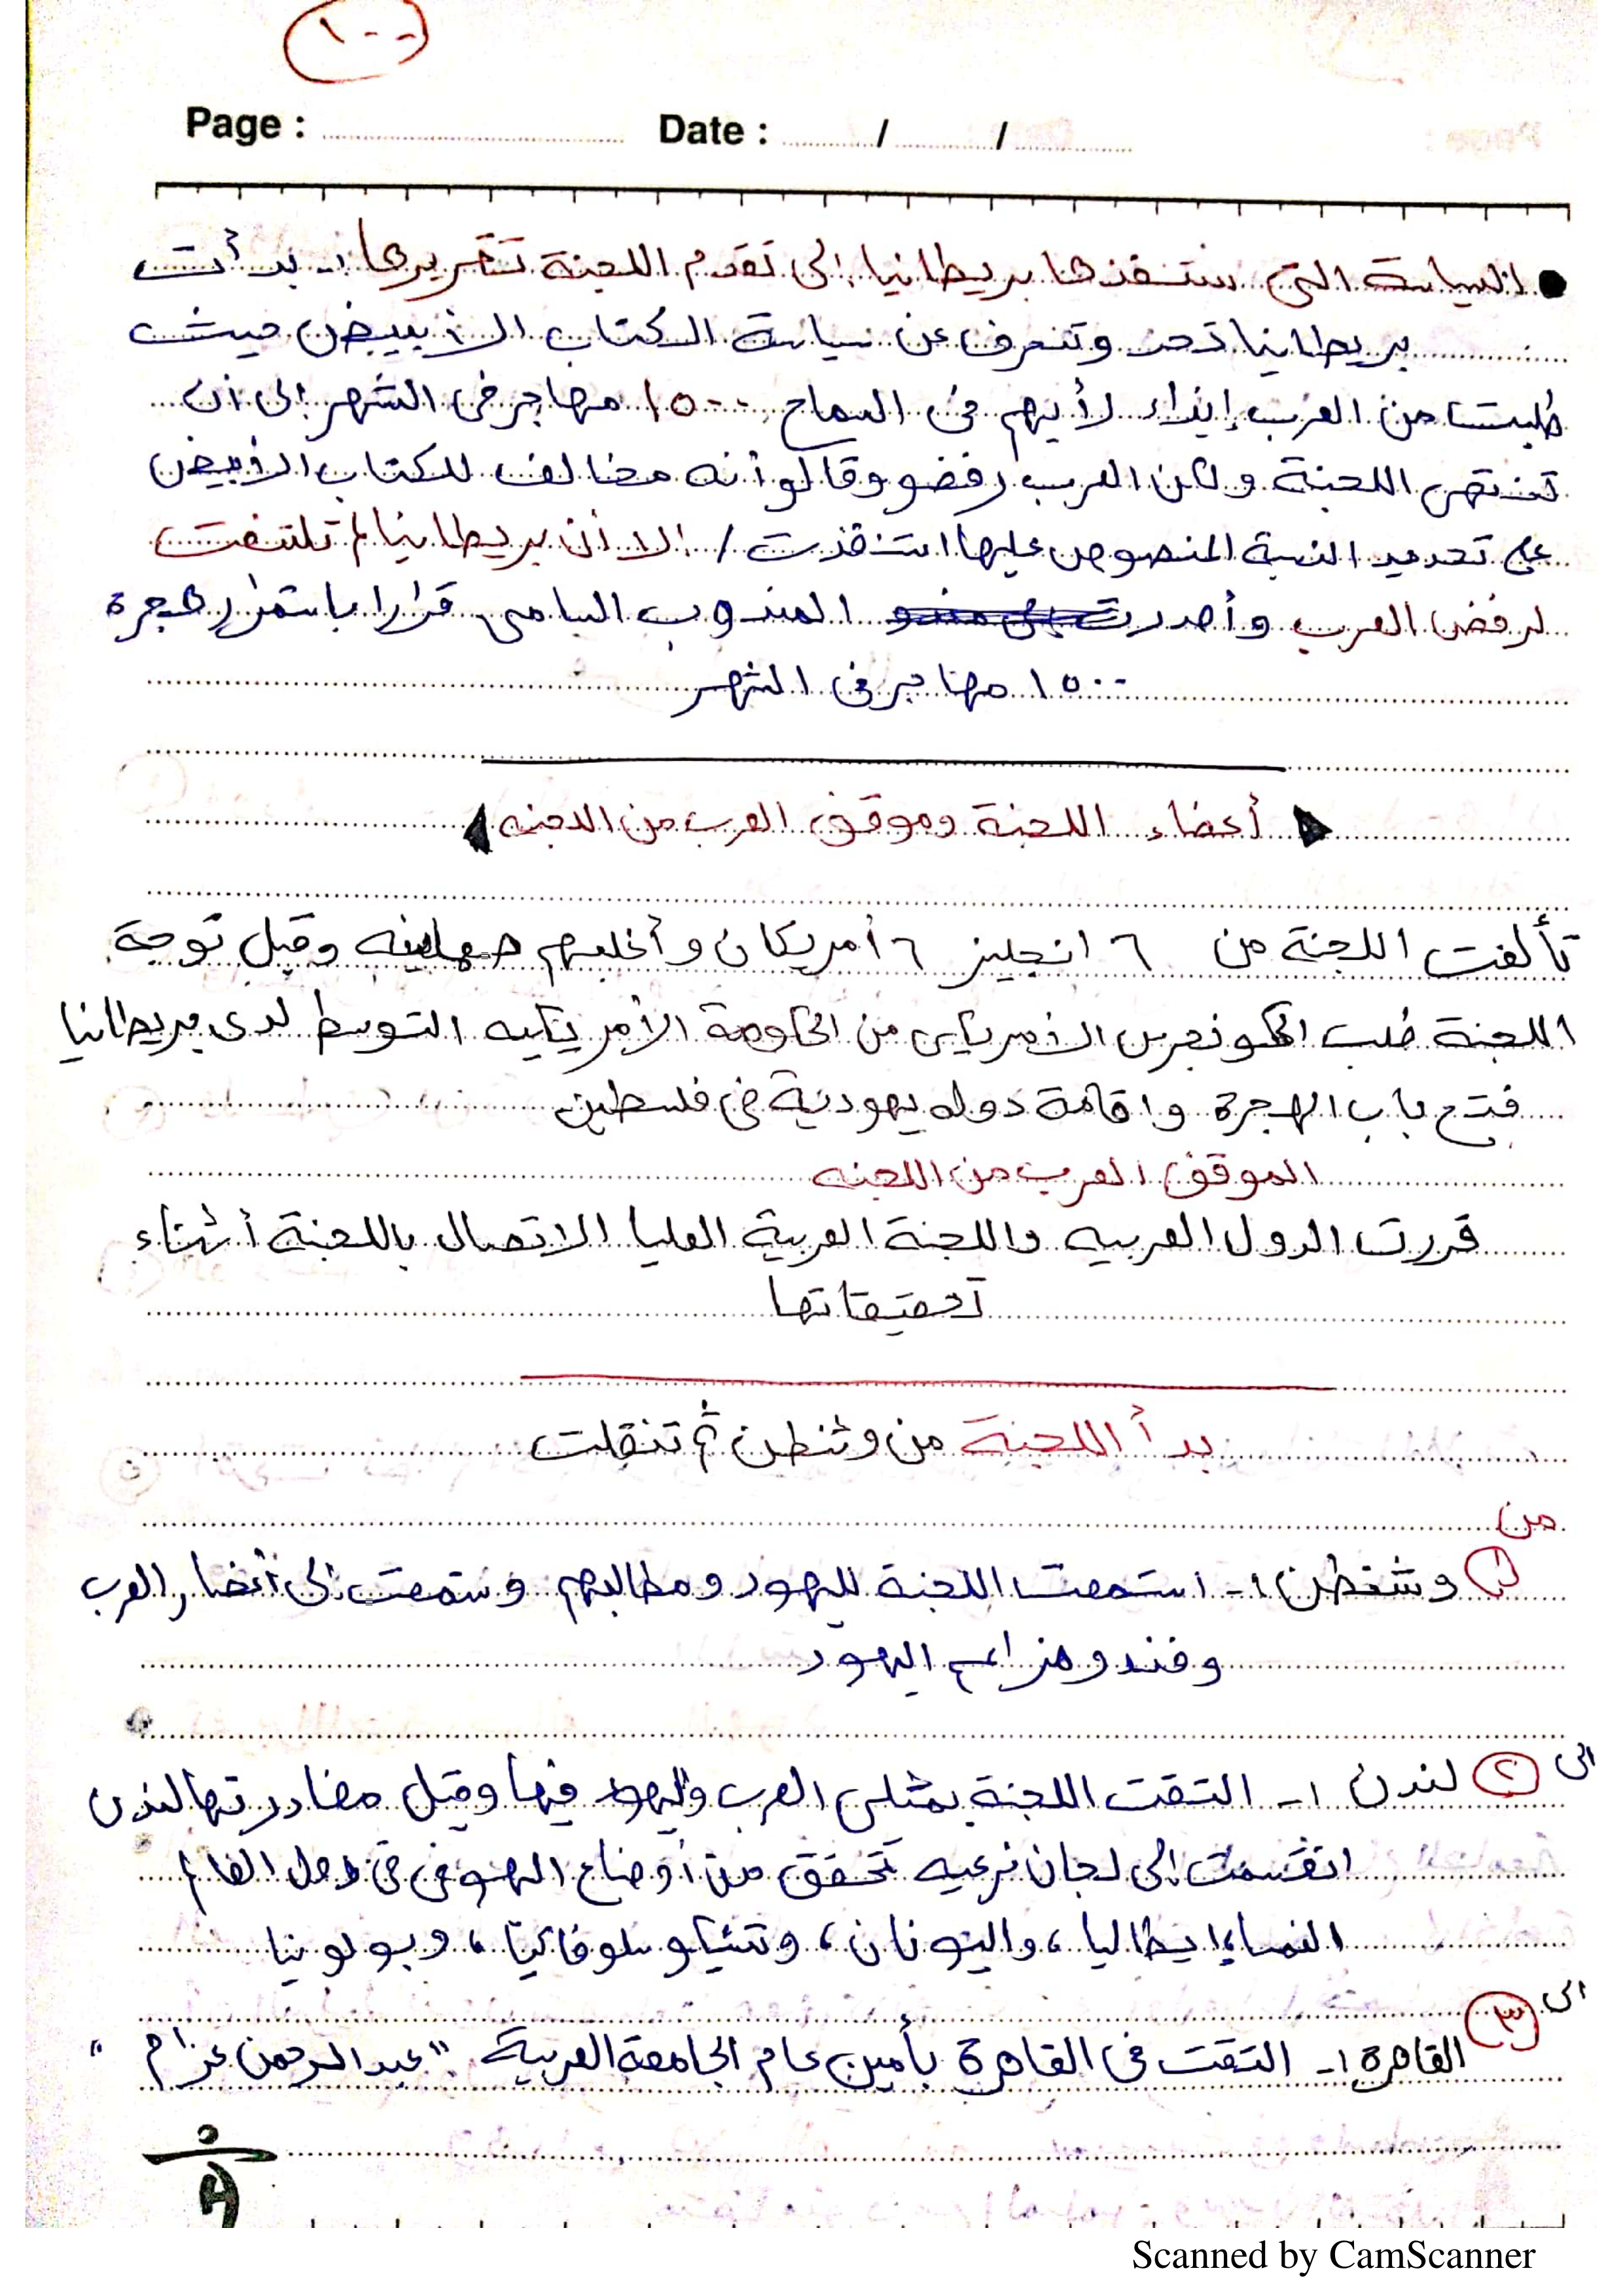 ١٠٠
Page : Date : / /
السياسة التى ستنفذها بريطانيا إلى تقدم اللجنة تقريرها :- بدأت
بريطانيا تحد وتنحرف عن سياسة الكتاب الأبيض حيث
طلبت من العرب إبداء رأيهم فى السماح ١٥٠٠ مهاجر فى الشهر إلى أن
تنتهى اللجنة ولكن العرب رفضو وقالو أنه مخالف للكتاب الأبيض
على تحديد النسبة المنصوص عليها استنفذت / الا أن بريطانيا لم تلتفت
لرفض العرب وأصدرت المندوب السامى قرارا باستمرار هجرة
١٥٠٠ مهاجر فى الشهر
أعضاء اللجنة وموقف العرب من اللجنه
تألفت اللجنة من ٦ انجليز ٦ أمريكان وأغلبهم صهاينه وقبل توجة
اللجنة طلب الكونجرس الأمريكى من الحكومة الأمريكيه التوسط لدى بريطانيا
فتح باب الهجرة واقامة دوله يهودية فى فلسطين
الموقف العرب من اللجنه
قررت الدول العربيه واللجنة العربية العليا الاتصال باللجنة أثناء
تحقيقاتها
بدأ اللجنة من وشنطن ثم تنقلت
من
١ وشنطن ١- استمعت اللجنة لليهود ومطالبهم وستمعت إلى أنصار العرب
وفندو مزاعم اليهود
الى ٢ لندن ١- التقت اللجنة بمثلى العرب واليهود فيها وقبل مغادرتها لندن
انقسمت إلى لجان فرعيه تحقق من أوضاع اليهو فى
النمسا، إيطاليا، واليونان، وتشيكو سلوفاكيا، وبولونيا
الى ٣
القاهرة ١- التقت فى القاهرة بأمين عام الجامعة العربية "عبد الرحمن عزام"
Scanned by CamScanner